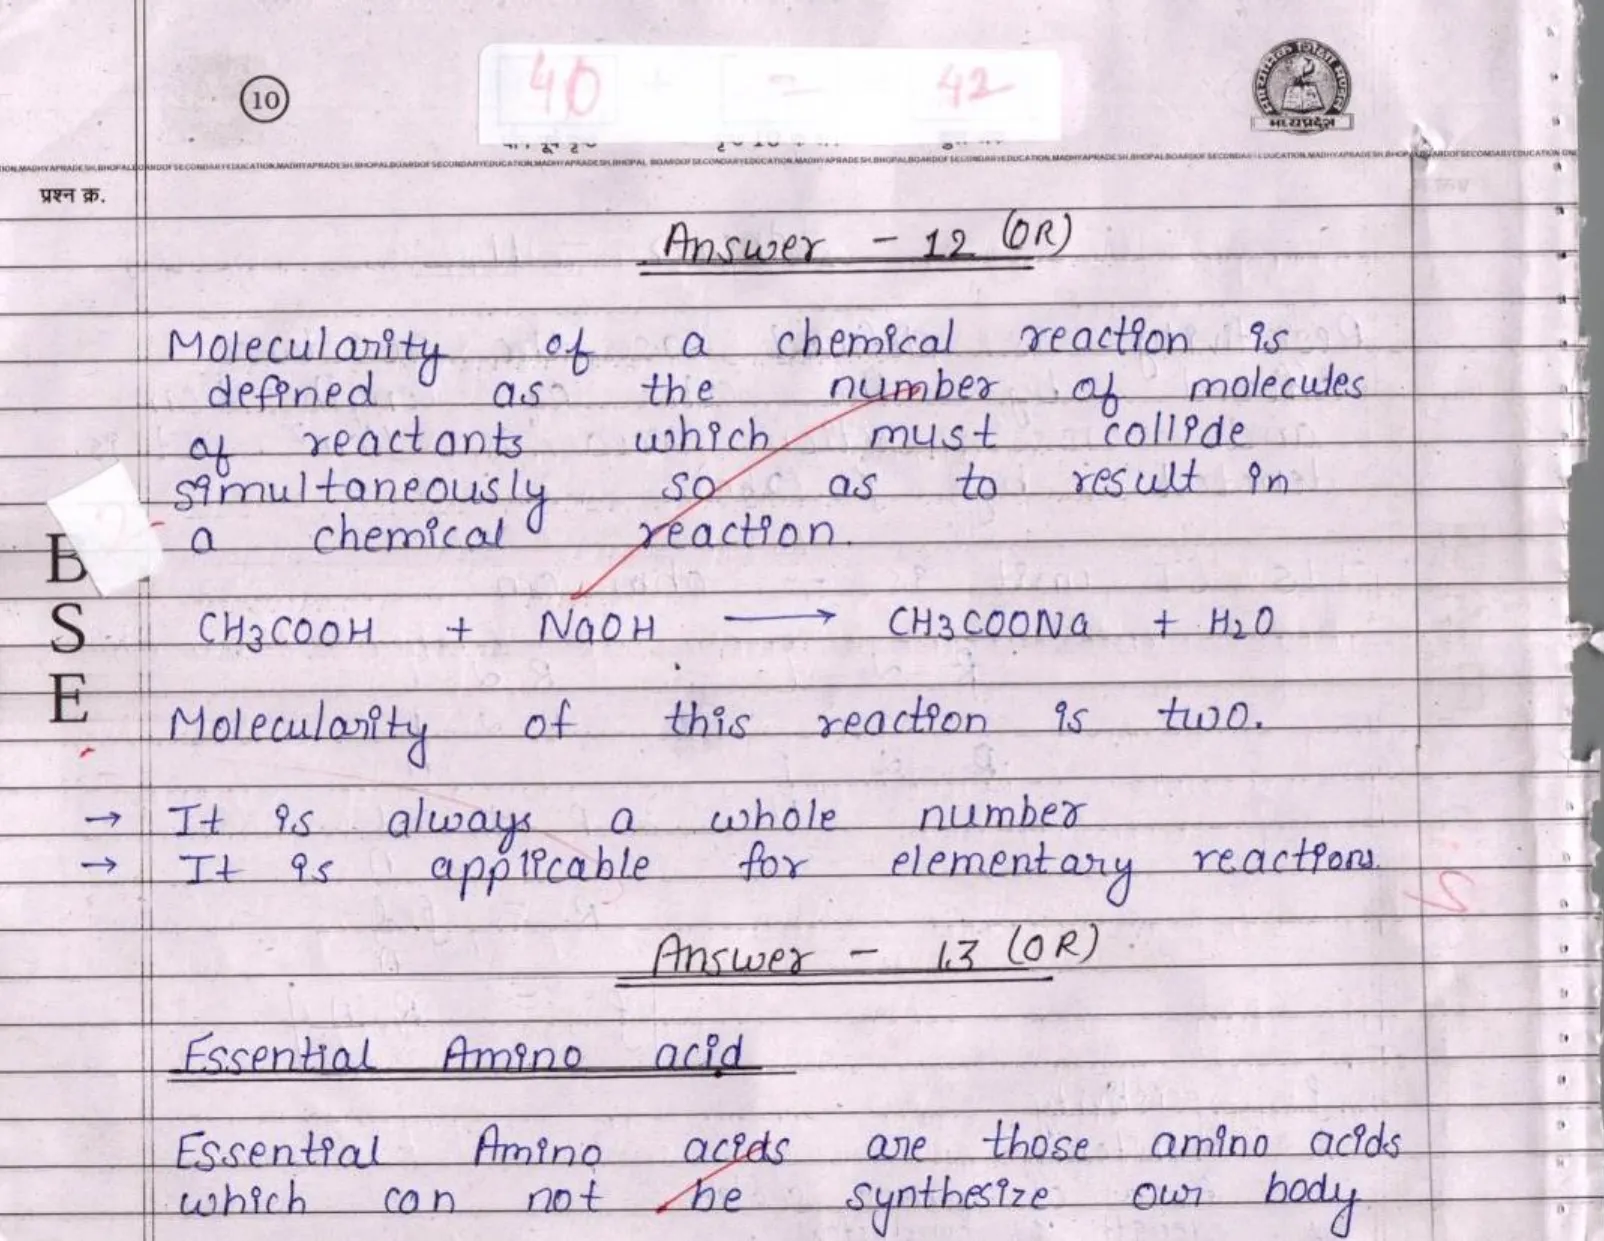 10
40 = 42
मध्यप्रदेश
प्रश्न क्र.
Answer - 12 (OR)
Molecularity of a chemical reaction is
defined as the number of molecules
of reactants which must collide
simultaneously so as to result in
a chemical reaction.
CH3COOH + NaOH → CH3COONa + H2O
Molecularity of this reaction is two.
→ It is always a whole number
→ It is applicable for elementary reactions.
B
S
E
Answer - 13 (OR)
Essential Amino acid
Essential Amino acids are those amino acids
which can not be synthesize our body